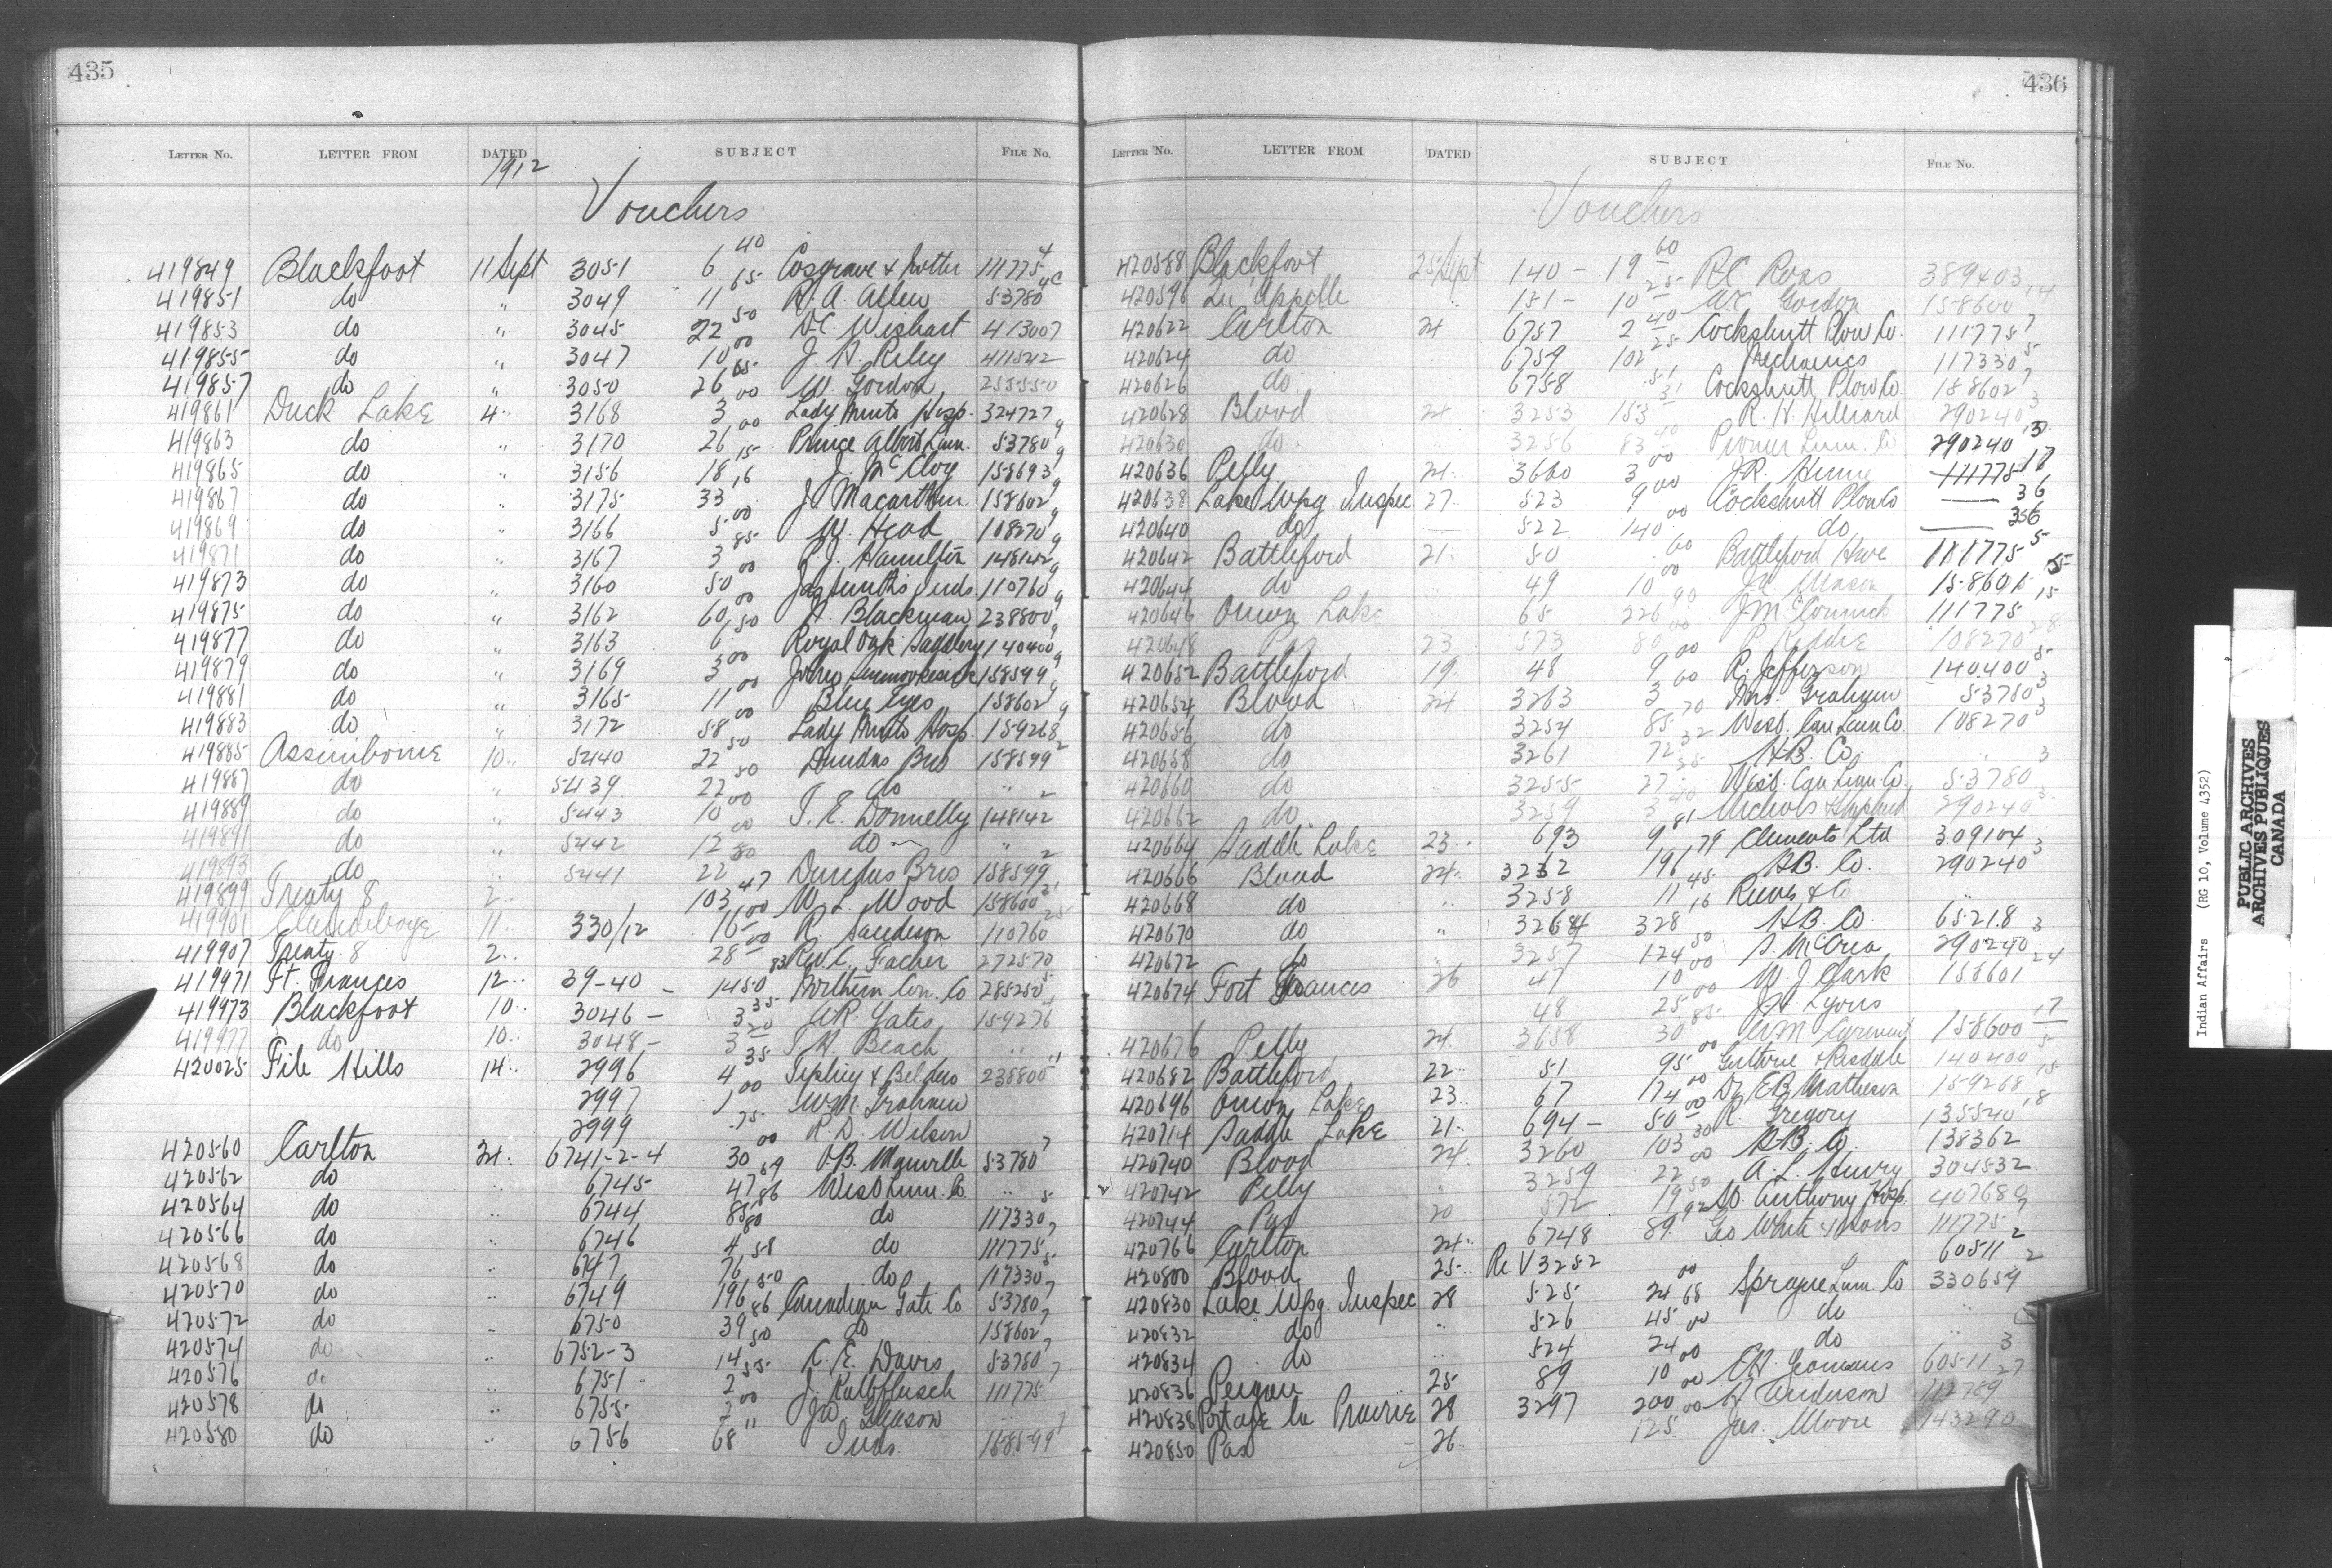 435
LETTER No. LETTER FROM DATED SUBJECT FILE No.
1912
Vouchers
419849 Blackfoot 11 Sept 3051 6 40 Cosgrave & 111775 4
419851 do " 3049 11 15 R. A. Allen 53780 4c
419853 do " 3045 22 50 D.C. Wishart 413007
419855 do " 3047 10 00 J. H. Riley 411542
419857 do " 3050 26 65 W. Gordon 255550
419861 Duck Lake 4 " 3168 3 00 Lady Minto Hosp. 324727
419863 do " 3170 26 00 Prince Albert Lum. 53780 9
419865 do " 3156 18 15 J. McCloy 158693 9
419867 do " 3175 33 16 J. Macarthur 158602 9
419869 do " 3166 5 00 W. Head 108270 9
419871 do " 3167 3 85 Hamilton 148142 9
419873 do " 3160 50 00 Jas Smith's Inds. 110760 9
419875 do " 3162 60 00 Blackman 238800 9
419877 do " 3163 6 50 Royal Oak Saddlery 140400 9
419879 do " 3169 3 00 158599 9
419881 do " 3165 11 00 Blue Eyes 158602 9
419883 do " 3172 58 00 Lady Minto Hosp. 159268
419885 Assiniboine 10 " 5440 22 50 Dundas Bros 158599 2
419887 do " 5439 22 50 do " 2
419889 do " 5443 10 00 T. E. Donnelly 148142
419891 do " 5442 12 00 do "
419893 do " 5441 22 80 Dundas Bros 158599 2
419899 Treaty 8 2 " 103 47 W. L. Wood 158600
419901 Clandeboye 11 " 330/12 16 00 R. Sanderson 110760 25
419907 Treaty 8 2 " 28 00 Rev. C. Facher 272570
419971 Ft. Frances 12 " 39-40 - 1450 83 Northern Con. Co 285250 5
419973 Blackfoot 10 " 3046 - 3 35 Gates 159276
419977 do 10 " 3048 - 3 20 Beach "
420025 File Hills 14 " 2996 4 35 238800 11
2997 1 00 W.M. Graham
2999 75 R. D. Wilson
420560 Carlton 24 " 6741-2-4 30 00 O.B. Manville 53780 7
420562 do " 6745 47 59 West Lum. Co. "
420564 do " 6744 85 86 do 117330 5
420566 do " 6746 4 80 do 111775 7
420568 do " 6747 76 58 do 117330 5
420570 do " 6749 196 50 Canadian Gate Co 53780 7
420572 do " 6750 39 86 do 158602 7
420574 do " 6752-3 14 50 R. E. Davis 53780 7
420576 do " 6751 2 55 J. Kalbfleisch 111775 7
420578 do " 6755 2 00 Gleason "
420580 do " 6756 68 " Inds. 158599 7
436
LETTER No. LETTER FROM DATED SUBJECT FILE No.
Vouchers
420588 Blackfoot 25 Sept 140 - 19 60 R.C. Ross 389403
420596 Qu'Appelle " 151 - 10 25 Gordon 158600 14
420622 Carlton 24 6757 2 40 Cockshutt Plow Co. 111775 7
420624 do 6759 102 25 Mechanics 117330 5
420626 do 6758 51 Cockshutt Plow Co. 158602 7
420628 Blood 24 3253 153 31 R. H. Hilliard 290240 3
420630 do " 3256 83 40 Pioneer Lum. Co 290240 3
420636 Pelly 24 3660 3 00 J.R. Hume 111775 17
420638 Lake Wpg. Inspec 27 523 9 00 Cockshutt Plow Co — 36
420640 do 522 140 00 do — 36
420642 Battleford 21 50 60 Battleford Hdwe 111775 5
420644 do 49 10 00 15
420646 Onion Lake 65 226 90 J McCormick 111775 15
420648 Pas 23 573 80 00 108270 28
420652 Battleford 19 48 9 00 R. Jefferson 140400 5
420654 Blood 24 3263 3 60 Mrs. Graham 53780 3
420656 do 3254 85 70 West. Can Lum Co. 108270 3
420658 do 3261 72 32 H.B. Co. " 3
420660 do 3255 27 25 West. Can Lum Co. 53780
420662 do 3259 3 40 Nichols & Shephard 290240 3
420664 Saddle Lake 23 693 9 81 Clements Ltd 309104
420666 Blood 24 3232 196 79 H.B. Co. 290240 3
420668 do " 3258 11 45 Reeves & Co "
420670 do " 3264 328 16 H.B. Co. 65218
420672 do " 3257 124 50 McCrea 290240 3
420674 Fort Frances 26 47 10 00 W. J. Clark 158601 24
48 25 00 J.H. Lyons
420676 Pelly 24 3658 30 85 158600 17
420682 Battleford 22 51 95 00 Guthrie & 140400 5
420696 Onion Lake 23 67 174 00 Dr E.B. Matheson 159268 15
420714 Saddle Lake 21 694 - 50 00 R. Gregory 135540 18
420740 Blood 24 3260 103 30 H.B. Co. 138362
420742 Pelly " 3259 22 00 A. L. Henry 304532
420744 Pas 20 572 19 50 St. Anthony Hosp. 407680
420766 Carlton 24 6748 89 92 Geo White & Sons 111775 7
420800 Blood 25 Re V 3252 60511 2
420830 Lake Wpg. Inspec 28 525 24 00 Sprague Lum. Co 330659 2
420832 do " 526 45 68 do "
420834 do " 524 24 00 do "
420836 Peigan 25 89 10 00 E.H. Yeomans 60511 3
420838 Portage la Prairie 28 3297 200 00 Anderson 112789 27
420850 Pas 26 125 00 Jas. Moore 143290
Indian Affairs (RG 10, Volume 4352)
PUBLIC ARCHIVES
ARCHIVES PUBLIQUES
CANADA